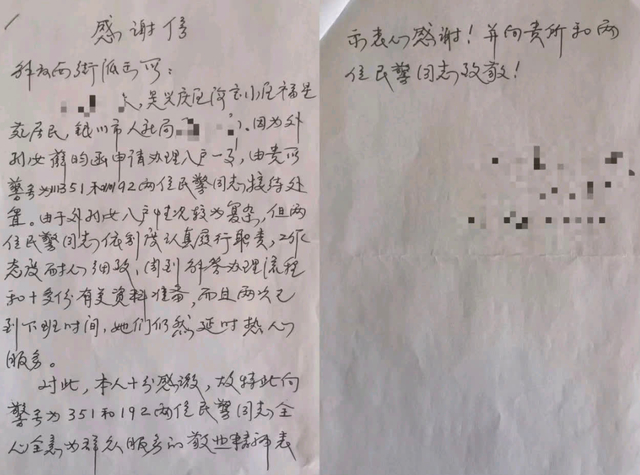 感谢信
解放西街派出所：
，是兴庆区
苑居民，银川市人社局（ ）。因为外
孙女前昀函申请办理入户一事，由贵所
警号为351和192两位民警同志接待处
置。由于外孙女入户情况较为复杂，但两
位民警同志依制度认真履行职责，工作
态度耐心细致，周到解答办理流程
和十多份有关资料准备，而且两次已
到下班时间，她们仍然延时热心
服务。
对此，本人十分感激，故特此向
警号为351和192两位民警同志全
心全意为群众服务的敬业精神表
示衷心感谢！并向贵所和两
位民警同志致敬！